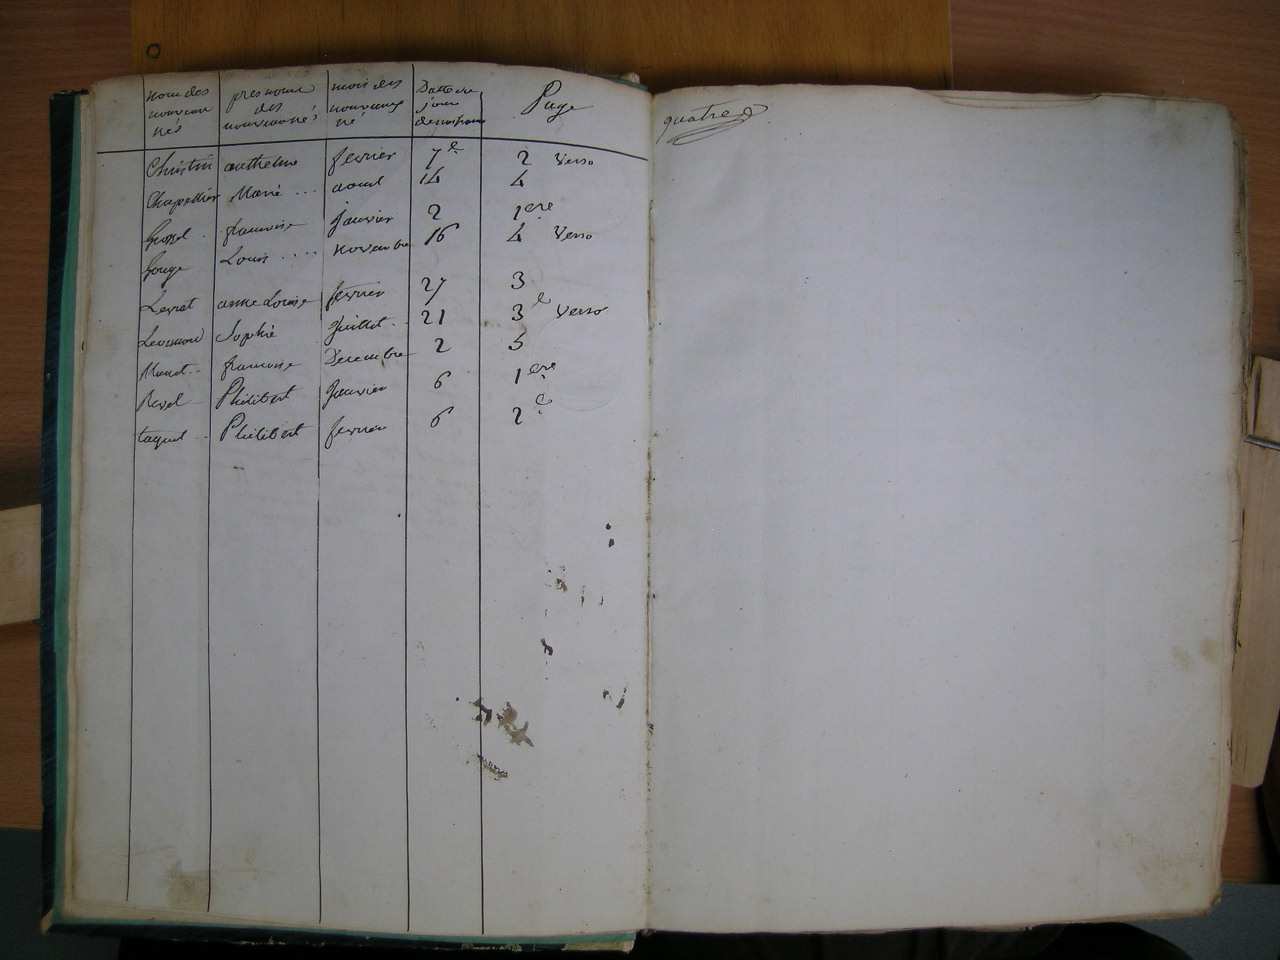 nom des nouveau nés | presnom des nouveau nés | mois des nouveaux né | Datte du jour de naissance | Page
Christin anthelme fevrier 7e 2 Verso
Chapellier Marie ... aout 14 4
francoise Janvier 2 1ere
Gouge Louis .... novembre 16 4 Verso
Levrat anne Louise fevrier 27 3
Sophie Juillet 21 3e Verso
francoise Decembre 2 5
Revel Philibert Janvier 6 1ere
taquet Philibert fevrier 6 2e
quatre